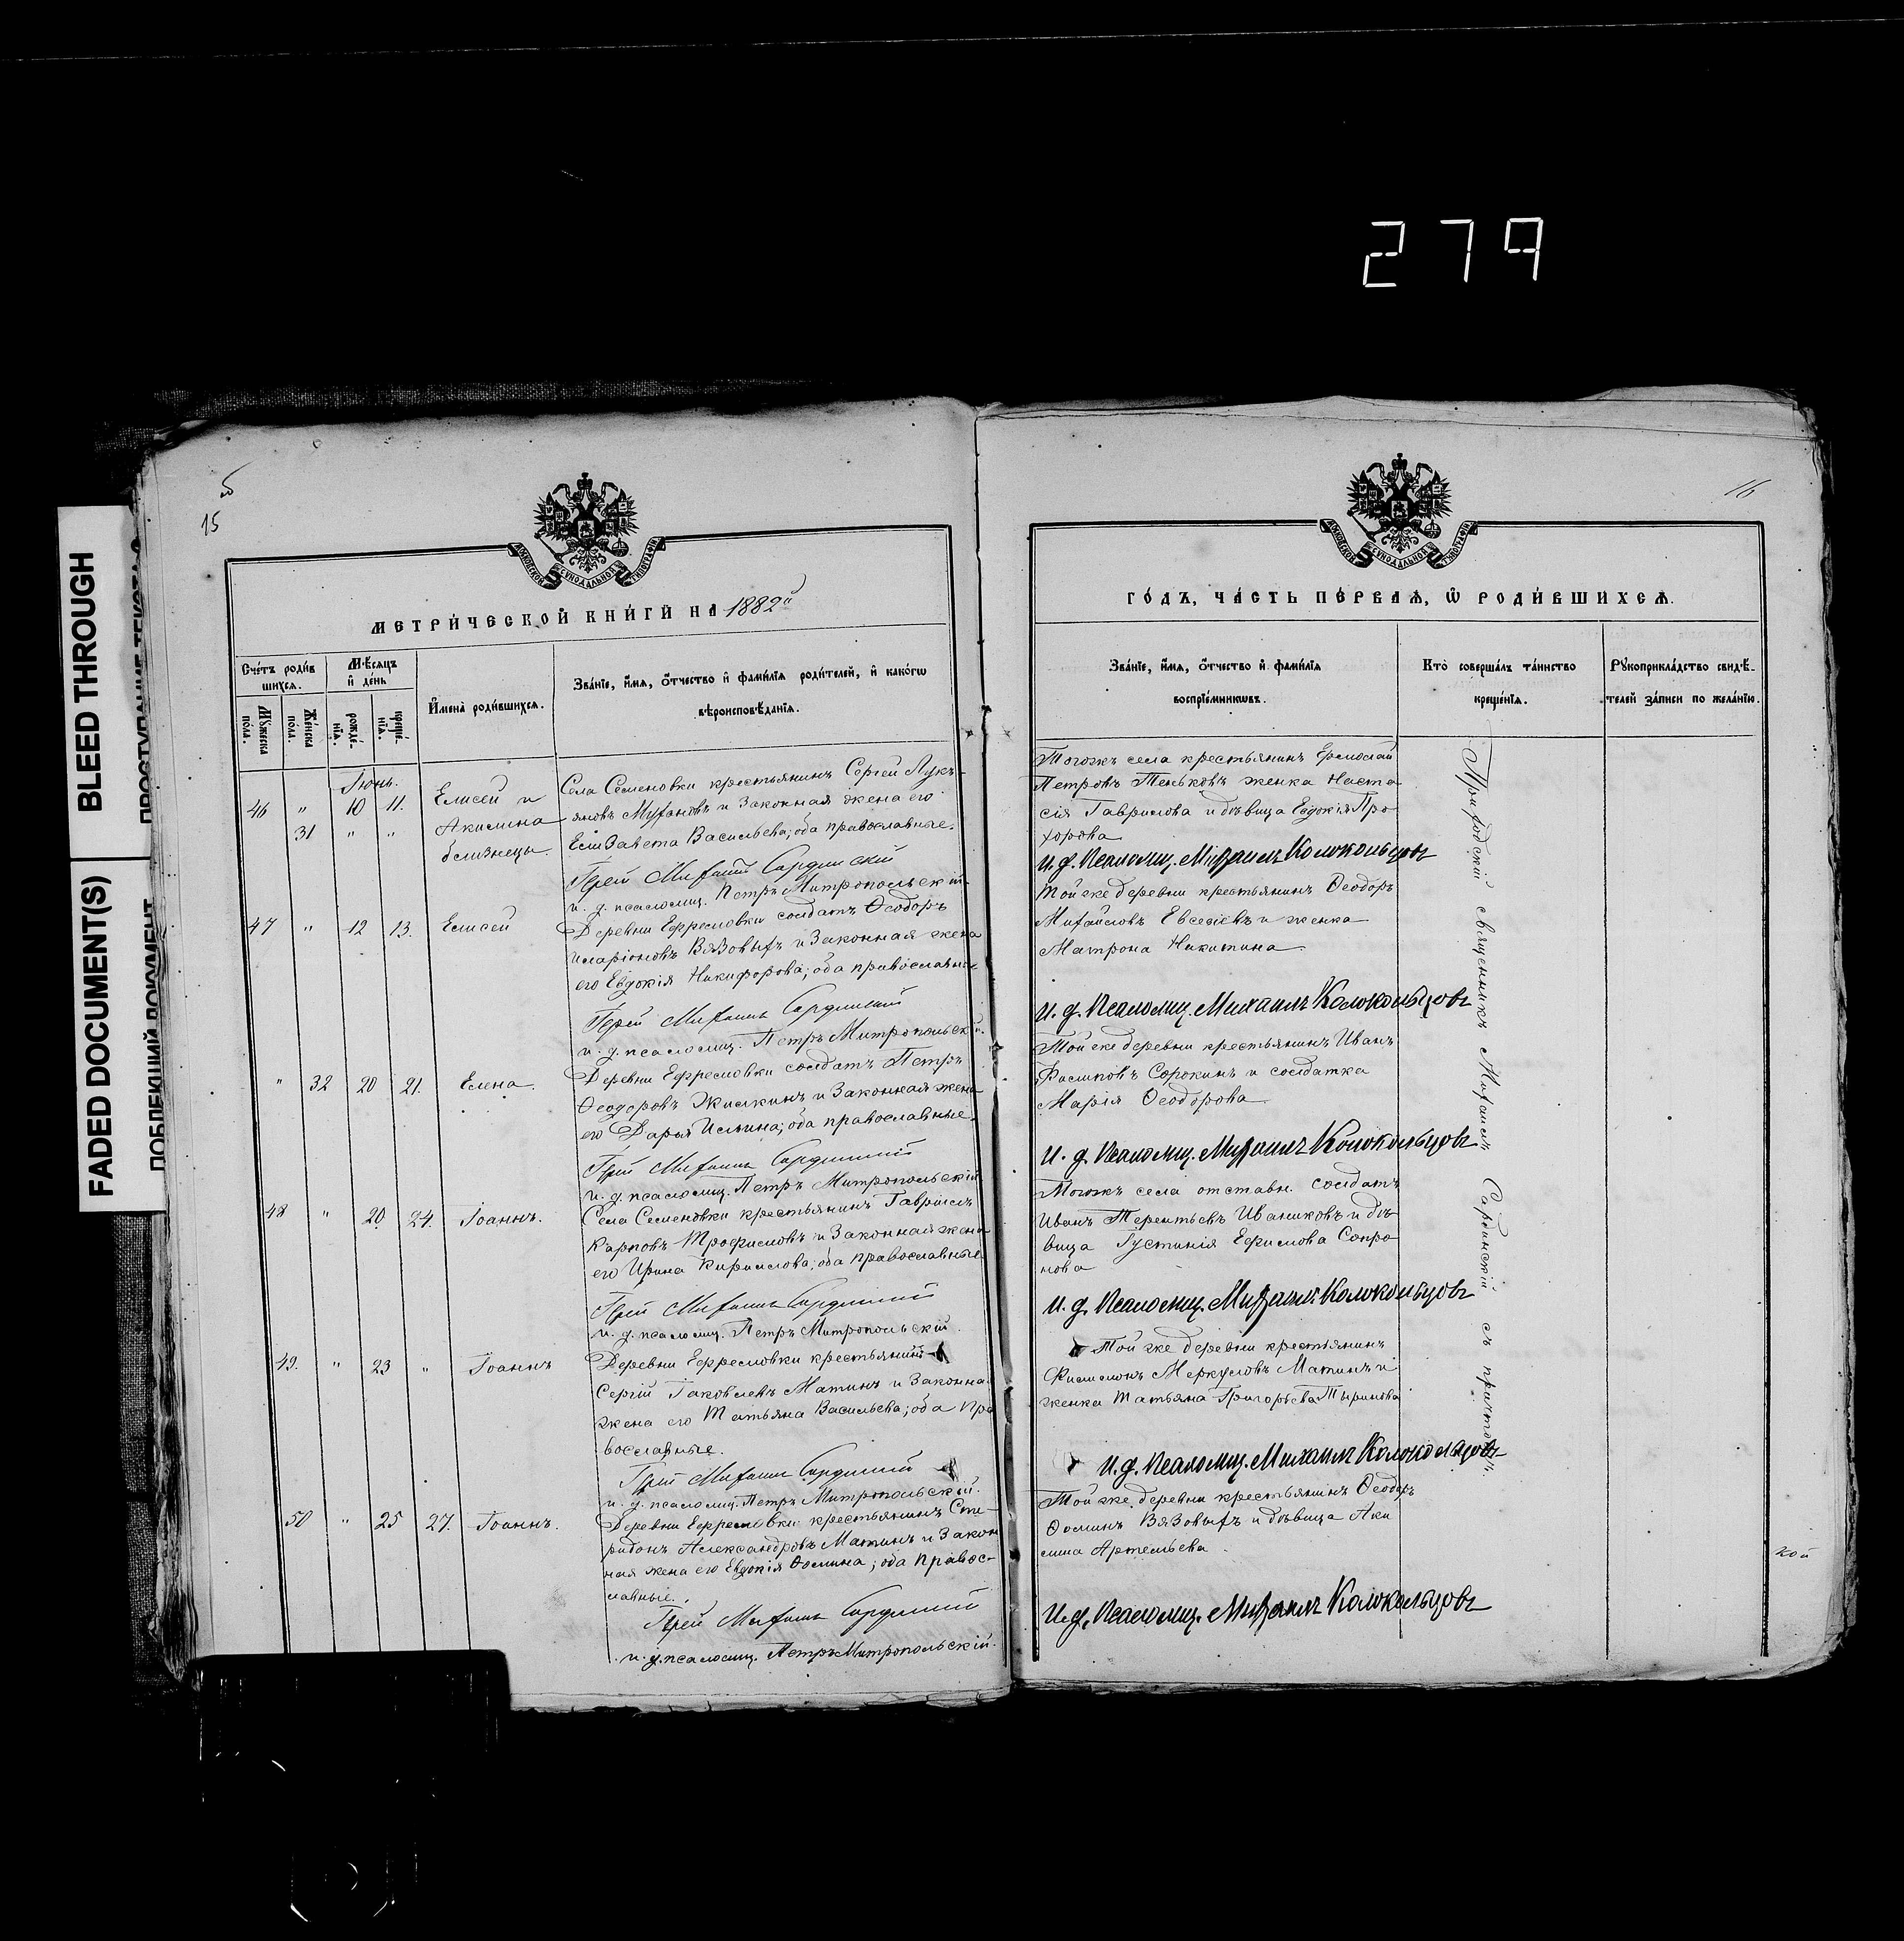 279
BLEED THROUGH
FADED DOCUMENT(S)
ПОБЛЕКШИЙ ДОКУМЕНТ
15
об
МЕТРИ́ЧЕСКОЙ КНИ́ГИ НА 1882й
Сче́тъ роди́в
шихсѧ.
Мѣ́сѧцъ
и҆ де́нь
И҆мена̀ роди́вшихсѧ.
Зва́нїе, и҆́мѧ, ѻ҆́тчество и҆ фами́лїѧ роди́телей, и҆ како́гѡ
вѣроисповѣ́данїѧ.
Мꙋ́жеска
по́ла.
Же́нска
по́ла.
рожде́-
нїѧ.
креще́-
нїѧ.
Іюнь.
46 " 10 11. Елисей и
31 " " Акилина
близнецы.
Села Семеновки крестьянинъ Сергей Лукъ-
яновъ Муханов и законная жена его
Елизавета Васильева; оба православные.
Іерей Михаилъ Сардинскій
и. д. псаломщ. Петръ Митропольскій
47 " 12 13. Елисей
Деревни Ефремовки солдатъ Ѳеодоръ
Иларіоновъ Вязовыхъ и законная жена
его Евдокія Никифорова; оба православные
Іерей Михаилъ Сардинскій
и. д. псаломщ. Петръ Митропольскій.
" 32 20 21. Елена.
Деревни Ефремовки солдатъ Петръ
Ѳеодоровъ Жилкинъ и законная жена
его Дарья Ильина; оба православные.
Іерей Михаилъ Сардинскій
и. д. псаломщ. Петръ Митропольскій
48 " 20 24. Іоаннъ.
Села Семеновки крестьянинъ Гавріилъ
Карповъ Трофимовъ и законная жена
его Ирина Кирилова; оба православные
Іерей Михаилъ Сардинскій
и. д. псаломщ. Петръ Митропольскій.
49. " 23 " Іоаннъ
Деревни Ефремовки крестьянинъ
Сергій Іаковлевъ Матинъ и законна
жена его Татьяна Васильева; оба пра
вославные.
Іерей Михаилъ Сардинскій
и. д. псаломщ. Петръ Митропольскій.
50 " 25 27. Іоаннъ.
Деревни Ефремовки крестьянинъ Спи
ридонъ Александровъ Матинъ и закон
ная жена его Евдокія Ѳомина; оба правос-
лавные.
Іерей Михаилъ Сардинскій
и. д. псаломщ. Петръ Митропольскій.
16
ГО́ДЪ, ЧА́СТЬ ПЕ́РВАѦ, Ѡ҆ РОДИ́ВШИХСѦ.
Зва́нїе, и҆́мѧ, ѻ҆́тчество и҆ фами́лїѧ
воспрїе́мникѡвъ.
Кто̀ соверша́лъ та́инство
креще́нїѧ.
Рꙋкоприкла́дство свидѣ́-
телей за́писи по жела́нїю.
Тогожъ села крестьянинъ Ермолай
Петровъ Пеньковъ женка Наста
сія Гаврилова и дѣвица Евдокія Про
хорова
И. д. Псаломщ. Михаилъ Колокольцовъ
Той же деревни крестьянинъ Ѳеодоръ
Михайловъ Евсеевъ и женка
Матрона Никитина
И. д. Псаломщ. Михаилъ Колокольцовъ
Той же деревни крестьянинъ Иванъ
Филиповъ Сорокинъ и солдатка
Марія Ѳеодорова
И. д. Псаломщ. Михаилъ Колокольцовъ
Тогожъ села отставн. солдатъ
Иванъ Терентьевъ Иваниковъ и дѣ
вица Іустинія Ефимова Сапро
нова
И. д. Псаломщ. Михаилъ Колокольцовъ
Той же деревни крестьянинъ
Филимонъ Меркуловъ Матинъ и
женка Татьяна Григорьева Тыринова
И. д. Псаломщ. Михаилъ Колокольцовъ
Той же деревни крестьянинъ Ѳеодоръ
Ѳоминъ Вязовыхъ и дѣвица Аки
лина Артемьева.
И. д. Псаломщ. Михаилъ Колокольцовъ
Приходскій священникъ Михаилъ Сардинскій съ причтомъ.
кой